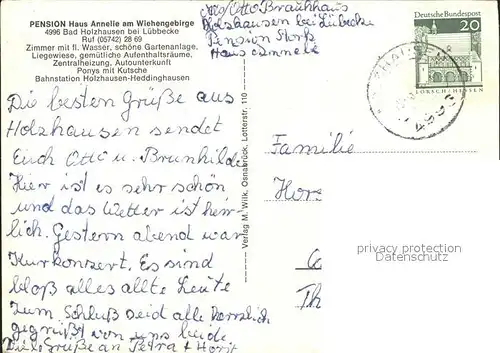 PENSION Haus Annelie am Wiehengebirge
4996 Bad Holzhausen bei Lübbecke
Ruf (05742) 28 69
Zimmer mit fl. Wasser, schöne Gartenanlage.
Liegewiese, gemütliche Aufenthaltsräume.
Zentralheizung, Autounterkunft
Ponys mit Kutsche
Bahnstation Holzhausen-Heddinghausen
Otto Brauhhaus
Holzhausen bei Lübbecke
Pension
Haus Annele
Deutsche Bundespost
20
LORSCH/HESSEN
4993
Die besten Grüße aus
Holzhausen sendet
Euch Otto u. Brunhilde
Hier ist es sehr schön
und das Wetter ist herr-
lich. Gestern abend war
Kurkonzert. Es sind
bloß alles allte Leute
Zum Schluß seid alle herzlich
gegrüßt von uns beide
Viele Grüße an Petra + Horst
Verlag M. Wilk, Osnabrück, Lotterstr. 110
Familie
Hors
Th
privacy protection
Datenschutz